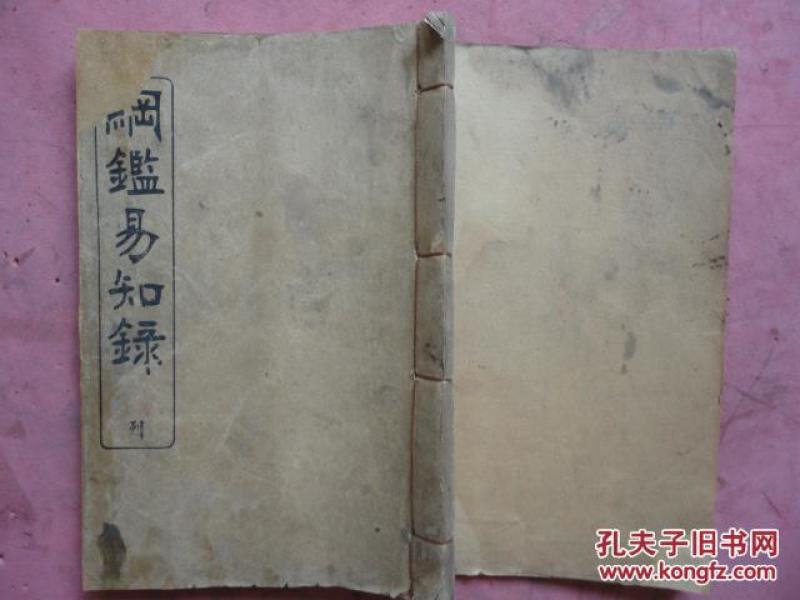 綱鑑易知錄
列
孔夫子旧书网
www.kongfz.com